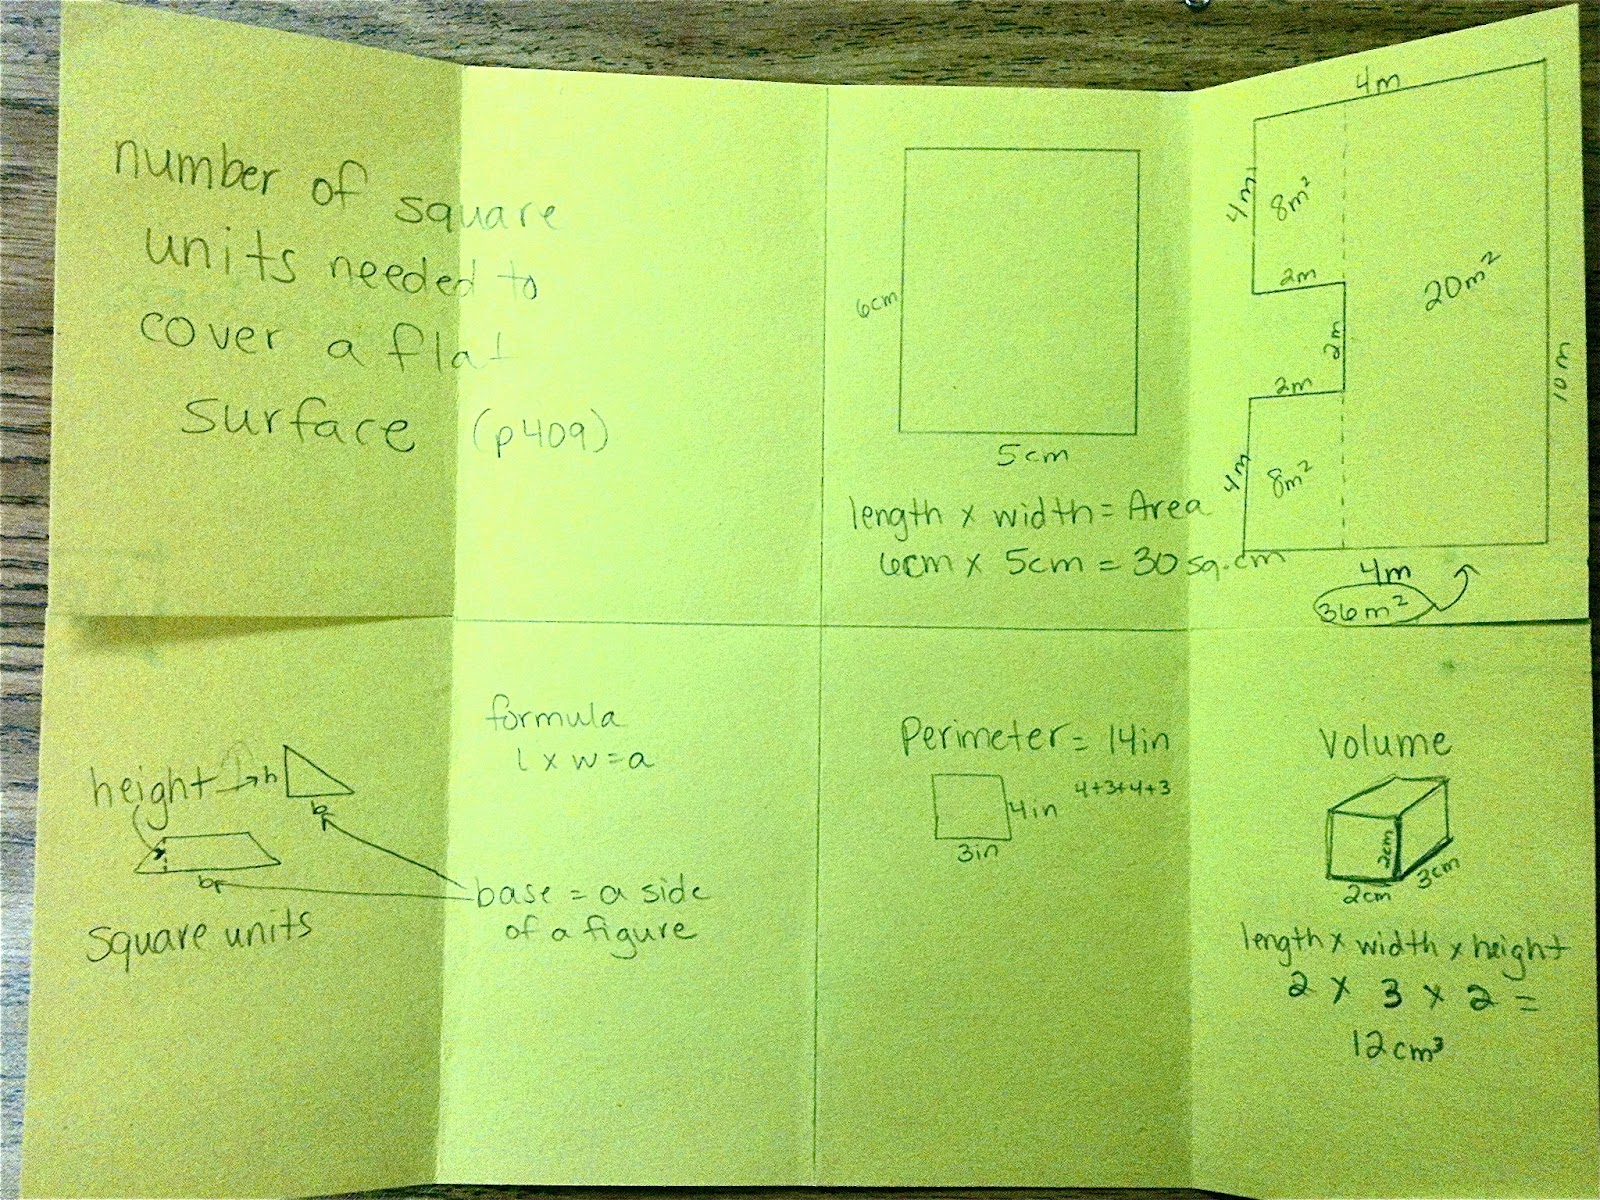 number of square
units needed to
cover a flat
surface (p409)
6cm
5cm
length x width = Area
6cm x 5cm = 30 sq. cm
4m
4m
8m²
2m
20m²
2m
2m
10m
4m
8m²
4m
36m²
height
h
b
b
square units
formula
l x w = a
base = a side
of a figure
Perimeter = 14in
4+3+4+3
4in
3in
Volume
2cm
2cm
3cm
length x width x height
2 x 3 x 2 =
12cm³